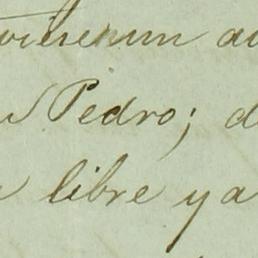 vinieron au
Pedro; d
libre ya